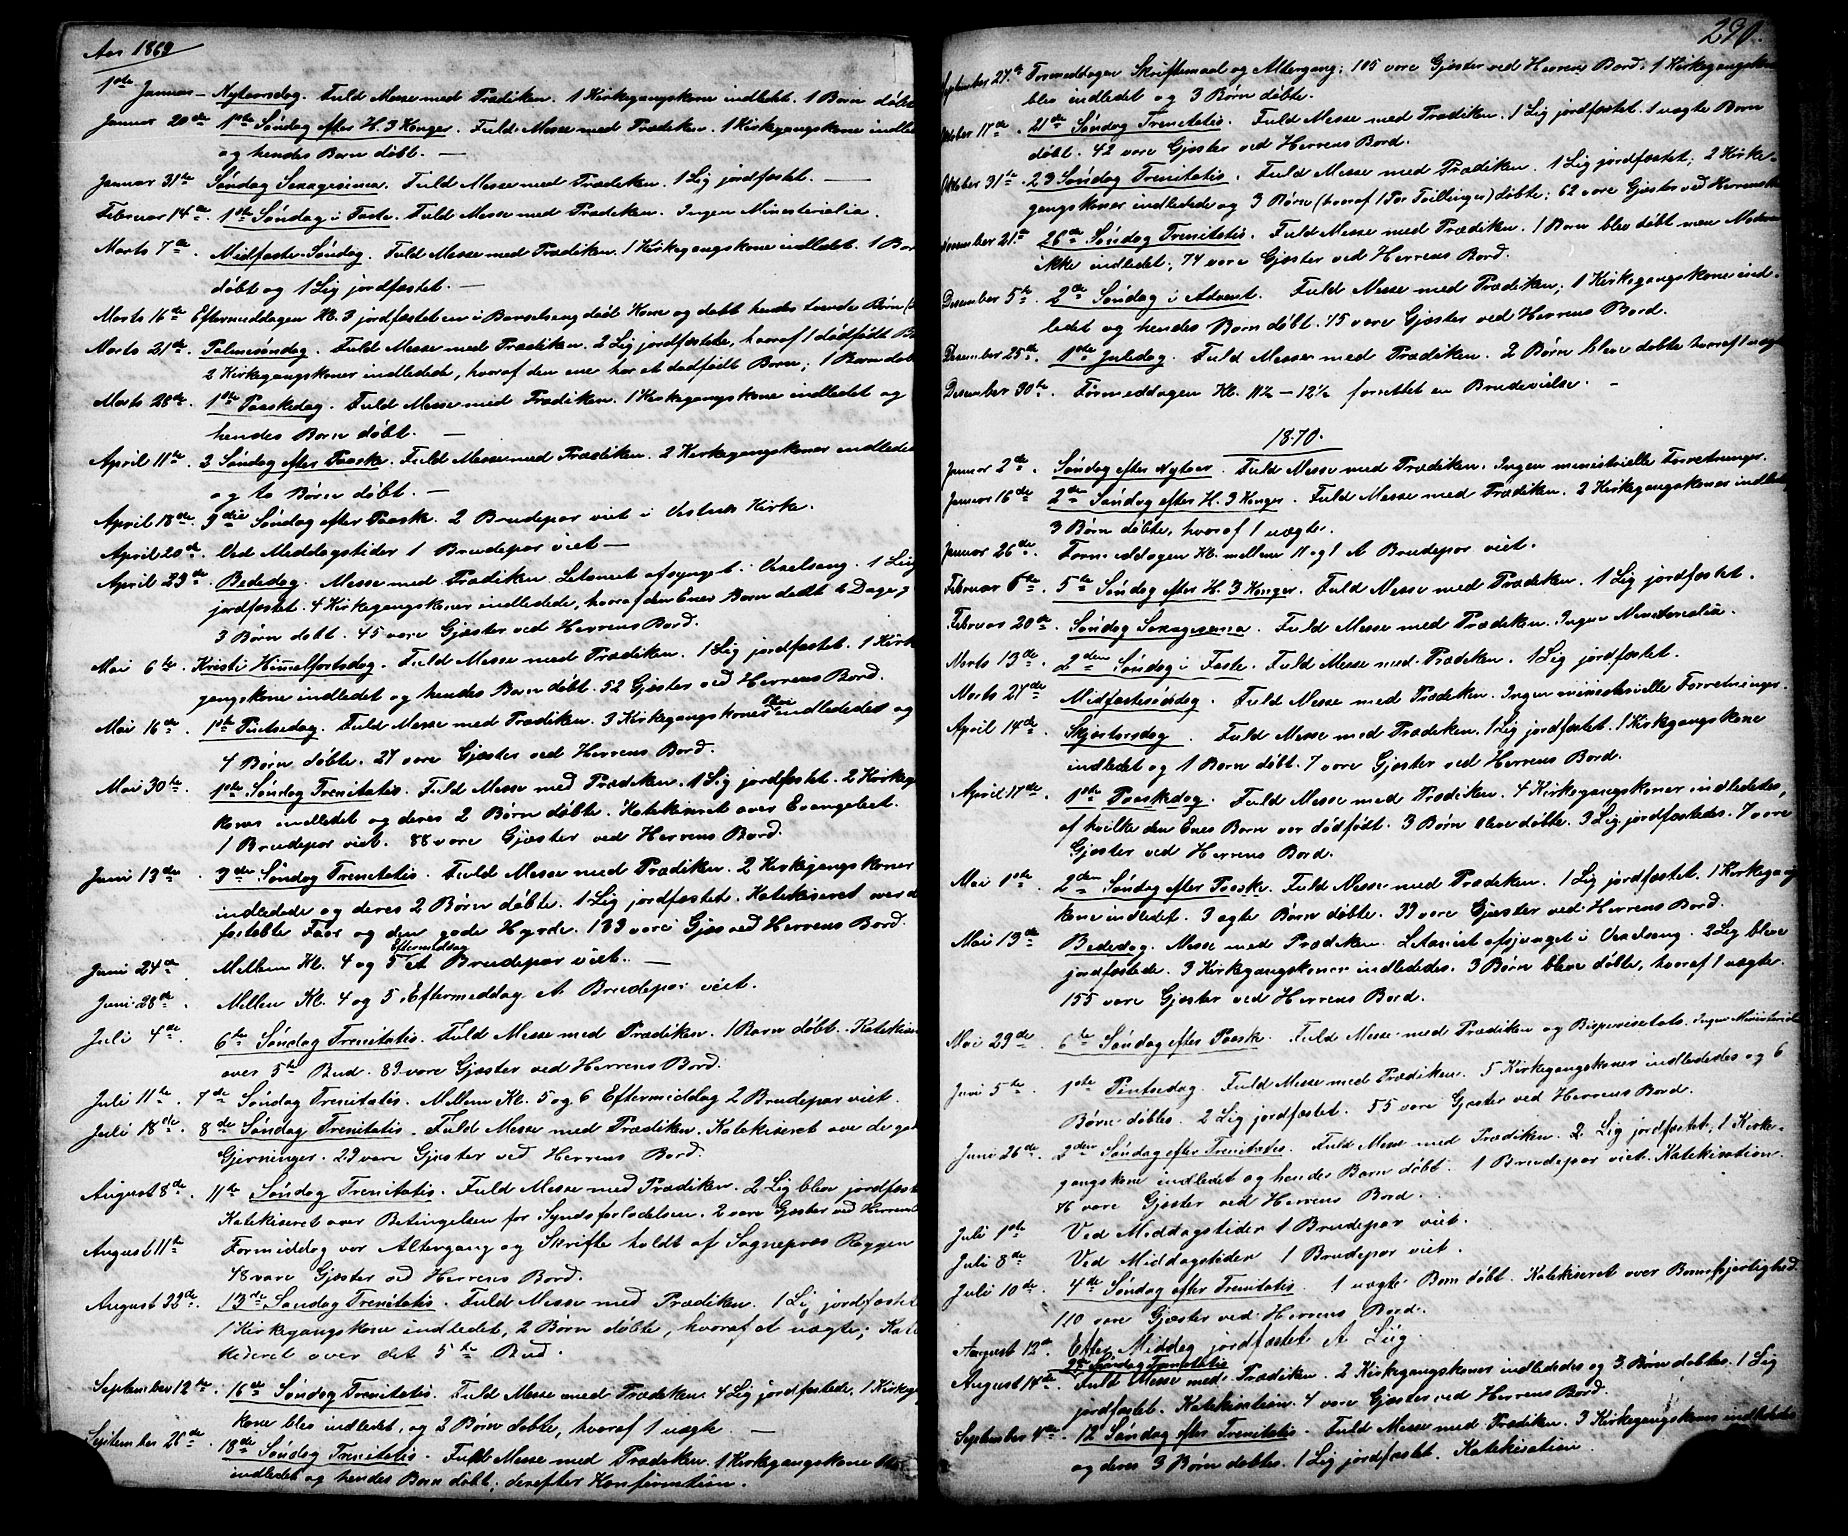 Aar 1869
1ste Januar – Nytaarsdag. Fuld Messe med Prædiken. 1 Kirkegangskone indledet. 1 Barn døbt
Januar 20de 1ste Søndag efter H. 3 Konger. Fuld Messe med Prædiken. 1 Kirkegangskone indle
og hendes Barn døbt. —
Januar 31te Søndag Sexagesima. Fuld Messe med Prædiken. 1 Lig jordfæstet. —
Februar 14de. 1ste Søndag i Faste. Fuld Messe med Prædiken. Ingen Ministerialia.
Marts 7de. Midfaste-Søndag. Fuld Messe med Prædiken. 1 Kirkegangskone indledet. 1 Bar
døbt og 1 Lig jordfæstet. —
Marts 16de Eftermiddagen Kl. 3 jordfæstet en i Barselseng død Kone og døbt hendes levende Børn
Marts 21de. Palmesøndag. Fuld Messe med Prædiken. 2 Lig jordfæstede, hvoraf 1 dødfødt B
2 Kirkegangskoner indledede, hvoraf den ene har et dødfødt Barn; 1 Barn døb
Marts 28de. 1ste Paaskedag. Fuld Messe med Prædiken. 1 Kirkegangskone indledet og
hendes Barn døbt. —
April 11te. 2 Søndag efter Paaske. Fuld Messe med Prædiken. 2 Kirkegangskoner indlede
og to Børn døbt. —
April 18de. 3die Søndag efter Paaske. 2 Brudepar viet i Kirke.
April 20de. Ved Middagstider 1 Brudepar viet —
April 23de. Bededag. Messe med Prædiken. Letaniet afsynget. Vexelsang. 1 Liig
jordfæstet. 4 Kirkegangskoner indledede, hvoraf den Enes Barn dødt 6 Dage g
3 Børn døbt. 45 vare Gjæster ved Herrens Bord.
Mai 6te. Kristi Himmelfartsdag. Fuld Messe med Prædiken. 1 Lig jordfæstet. 1 Kirke
gangskone indledet og hendes Barn døbt. 52 Gjæster ved Herrens Bord.
Mai 16de. 1ste Pintsedag. Fuld Messe med Prædiken. 3 Kirkegangskoner bleve indledede og
4 Børn døbte. 27 vare Gjæster ved Herrens Bord.
Mai 30te. 1ste Søndag Trenitatis. Fuld Messe med Prædiken. 1 Lig jordfæstet. 2 Kirkeg
koner indledet og deres 2 Børn døbte. Katekiseret over Evangeliet.
1 Brudepar viet. 88 vare Gjæster ved Herrens Bord.
Juni 13de. 3die Søndag Trenitatis. Fuld Messe med Prædiken. 2 Kirkegangskoner
indledede og deres 2 Børn døbte. 1 Lig jordfæstet. Katekiseret over d
fortabte Faar og den gode Hyrde. 133 vare Gjæs ved Herrens Bord.
Juni 24de. Mellem Kl. 4 og 5 Eftermiddag Et Brudepar viet. —
Juni 28de. Mellem Kl. 4 og 5 Eftermeddag Et Brudepar viet.
Juli 4de. 6te Søndag Trenitatis. Fuld Messe med Prædiken. 1 Barn døbt. Katekise
over 5te Bud. 89 vare Gjæster ved Herrens Bord.
Juli 11te. 7de Søndag Trenitatis. Mellem Kl. 5 og 6 Eftermiddag 2 Brudepar viet.
Juli 18de. 8de Søndag Trenitatis. Fuld Messe med Prædiken. Katekiseret over de gode
Gjerninger. 29 vare Gjæster ved Herrens Bord.
August 8de. 11te Søndag Trenitatis. Fuld Messe med Prædiken. 2 Lig blev jordfæst
Katekiseret over Betingelsen for Syndsforladelsen. 2 vare Gjæster ved Herrens B
August 11te Formiddag var Altergang og Skrifte holdt af Sognepræs Roggen
48 vare Gjæster ved Herrens Bord.
August 22de. 13de Søndag Trenitatis. Fuld Messe med Prædiken. 1 Lig jordfæstet
1 Kirkegangskone indledet, 2 Børn døbte, hvoraf et uægte; Kate
kiseret over det 5te Bud.
September 12te. 16de Søndag Trenitatis. Fuld Messe med Prædiken. 4 Lig jordfæstede, 1 Kirkeg
kone blev indledet, og 2 Børn døbte, hvoraf 1 uægte —
September 26de. 18de Søndag Trenitatis. Fuld Messe med Prædiken. 1 Kirkegangskone blev
indledet og hendes Barn døbt; derefter Konfirmation.
290.
September 27de Formeddagen Skriftemaal og Altergang; 105 vare Gjæster ved Herrens Bord; 1 Kirkegangskone
blev indledet og 3 Børn døbte.
Oktober 17de. 21de Søndag Trenitatis. Fuld Messe med Prædiken. 1 Lig jordfæstet. 1 uægte Barn
døbt. 42 vare Gjæster ved Herrens Bord.
Oktober 31te. 23 Søndag Trenitatis. Fuld Messe med Prædiken. 1 Lig jordfæstet; 2 Kirke-
gangskoner indledede og 3 Børn (hvoraf 1 Par Tvillinger) døbte; 62 vare Gjæster ved Herrens
November 21de 26de Søndag Trenitatis. Fuld Messe med Prædiken. 1 Barn blev døbt men Moderen
ikke indledet; 74 vare Gjæster ved Herrens Bord.
Desember 5te. 2de Søndag i Advent. Fuld Messe med Prædiken; 1 Kirkegangskone ind-
ledet og hendes Barn døbt. 45 vare Gjæster ved Herrens Bord.
Desember 25de. 1ste Juledag. Fuld Messe med Prædiken. 2 Børn bleve døbte hvoraf 1 uægte
Desember 30te. Formeddagen Kl. 11½ – 12½ forrettet en Brudevielse. –
1870.
Januar 2de. Søndag efter Nytaar. Fuld Messe med Prædiken. Ingen ministrielle Forretninger.
Januar 16de 2den Søndag efter H. 3 Konger. Fuld Messe med Prædiken. 2 Kirkegangskoner indledet
3 Børn døbte, hvoraf 1 uægte.
Januar 26de. Formeddagen Kl. mellem 11 og 1 Et Brudepar viet.
Februar 6te. 5te Søndag efter H. 3 Konger. Fuld Messe med Prædiken. 1 Lig jordfæstet.
Februar 20de. Søndag Sexagesima. Fuld Messe med Prædiken. Ingen Ministerialia.
Marts 13de. 2den Søndag i Faste. Fuld Messe med Prædiken. 1 Lig jordfæstet.
Marts 27de Midfastesøndag. Fuld Messe med Prædiken. Ingen ministerielle Forretninger.
April 14de. Skjærtorsdag. Fuld Messe med Prædiken. 1 Lig jordfæstet. 1 Kirkegangskone
indledet og 1 Barn døbt. 7 vare Gjæster ved Herrens Bord.
April 17de. 1ste Paaskedag. Fuld Messe med Prædiken. 4 Kirkegangskoner indledetes,
af hvilke den Enes Barn var dødfødt. 3 Børn bleve døbte. 3 Lig jordfæstedes. 7 vare
Gjæster ved Herrens Bord.
Mai 1ste. 2den Søndag efter Paaske. Fuld Messe med Prædiken. 1 Lig jordfæstet. 1 Kirkegangs
kone indledet. 3 ægte Børn døbte. 39 vare Gjæster ved Herrens Bord.
Mai 13de Bededag. Messe med Prædiken. Letaniet afsjunget i Vexelsang. 2 Lig bleve
jordfæstede. 3 Kirkegangskoner indledede. 3 Børn bleve døbte, hvoraf 1 uægte.
155 vare Gjæster ved Herrens Bord.
Mai 29de. 6te Søndag efter Paaske. Fuld Messe med Prædiken og Bispevisetats. Ingen Ministerialia
Juni 5te. 1ste Pintsedag. Fuld Messe med Prædiken. 5 Kirkegangskoner indlededes og 6
Børn døbtes. 2 Lig jordfæstet. 55 vare Gjæster ved Herrens Bord.
Juni 26de. 2den Søndag efter Trenitatis. Fuld Messe med Prædiken. 2 Lig jordfæstet; 1 Kirke-
gangskone indledet og hendes Barn døbt. 1 Brudepar viet. Katekisation.
46 vare Gjæster ved Herrens Bord.
Juli 1ste. Ved Middagstider 1 Brudepar viet.
Juli 8de. Ved Middagstider 1 Brudepar viet.
Juli 10de. 4de Søndag efter Trenitatis. 1 uægte Barn døbt. Katekiseret over Bornefjærlighed.
110 vare Gjæster ved Herrens Bord.
August 12te. Efter Middag jordfæstet Et Liig.
Søndag Trenitatis
August 14de. Fuld Messe med Prædiken. 2 Kirkegangskoner indlededes og 3 Børn døbtes. 1 Lig
jordfæstet. Katekisation. 4 vare Gjæster ved Herrens Bord.
September 4de. 12 Søndag efter Trenitatis. Fuld Messe med Prædiken. 3 Kirkegangskoner indlededes
og deres 3 Børn døbtes. 1 Lig jordfæstet. Katekisation.